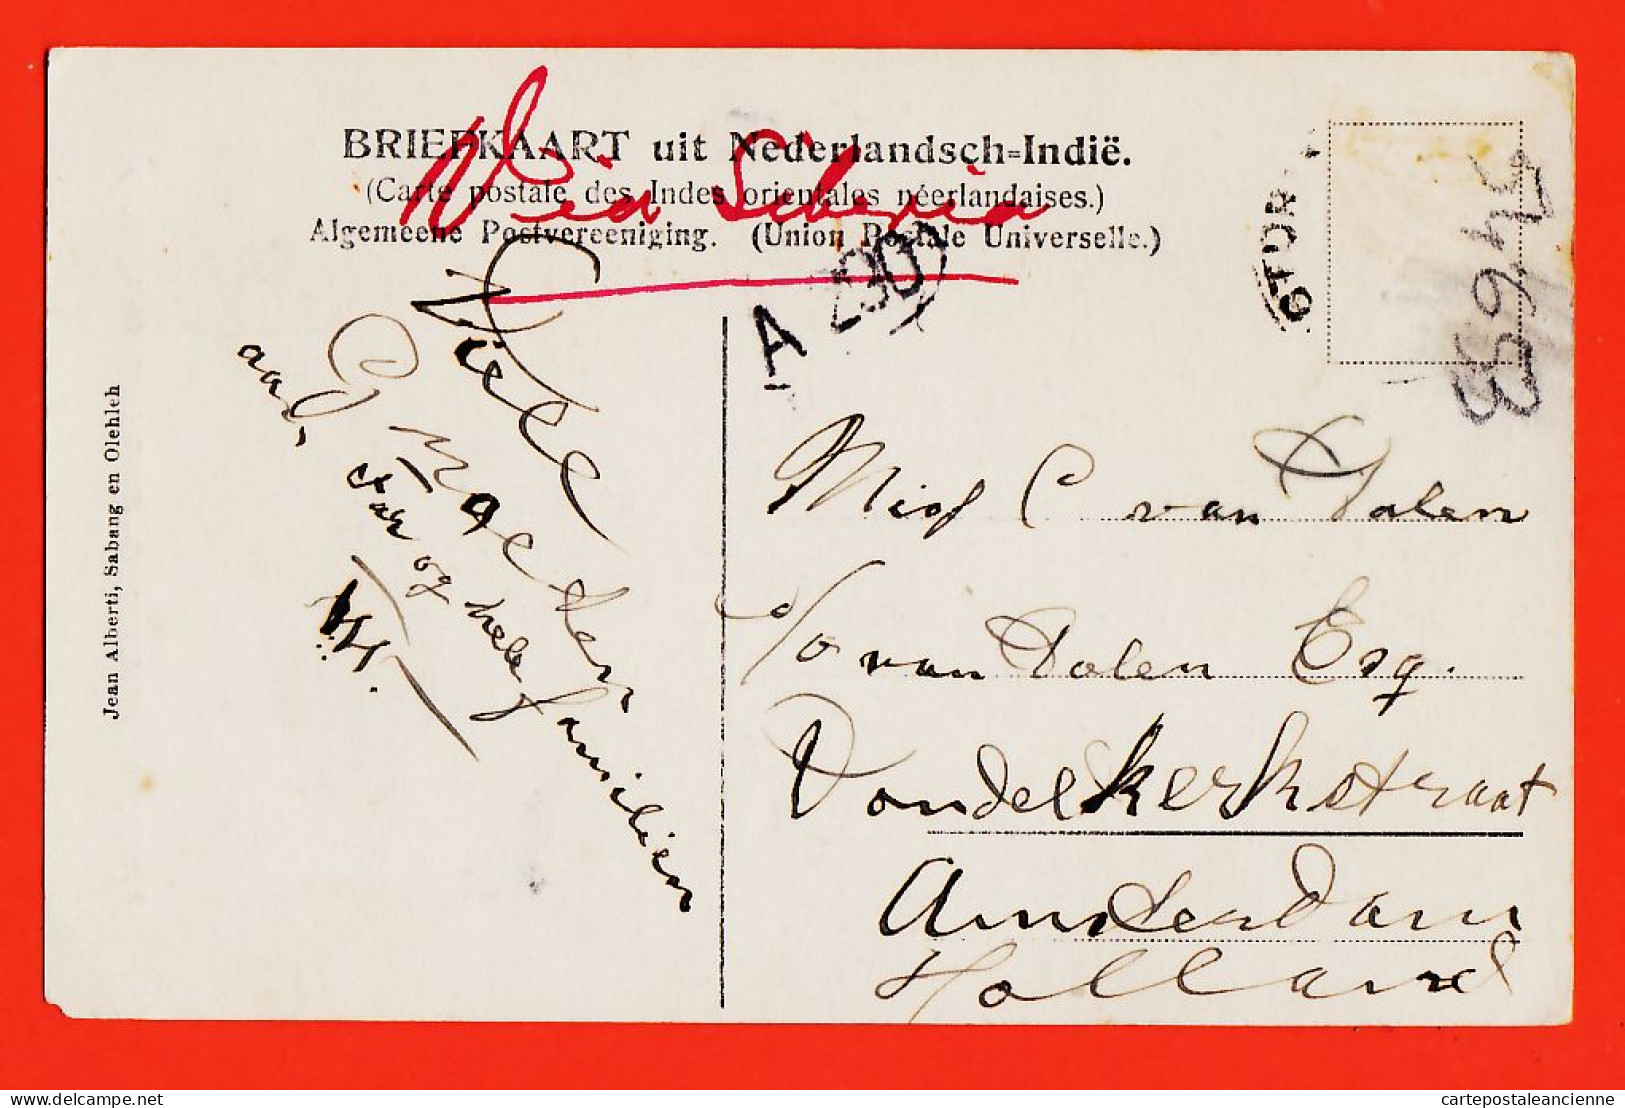 BRIEFKAART uit Nederlandsch-Indië.
(Carte postale des Indes orientales néerlandaises.)
Algemeene Postvereeniging. (Union Postale Universelle.)
Via Siberia
A 230
STOR
Jean Alberti, Sabang en Olehleh
Viele
Groeten
aan
familien
Miss C van Dalen
c/o van Dalen Esq.
Vondelkerkstraat
Amsterdam
Holland
delcampe.net
cartepostaleancienne